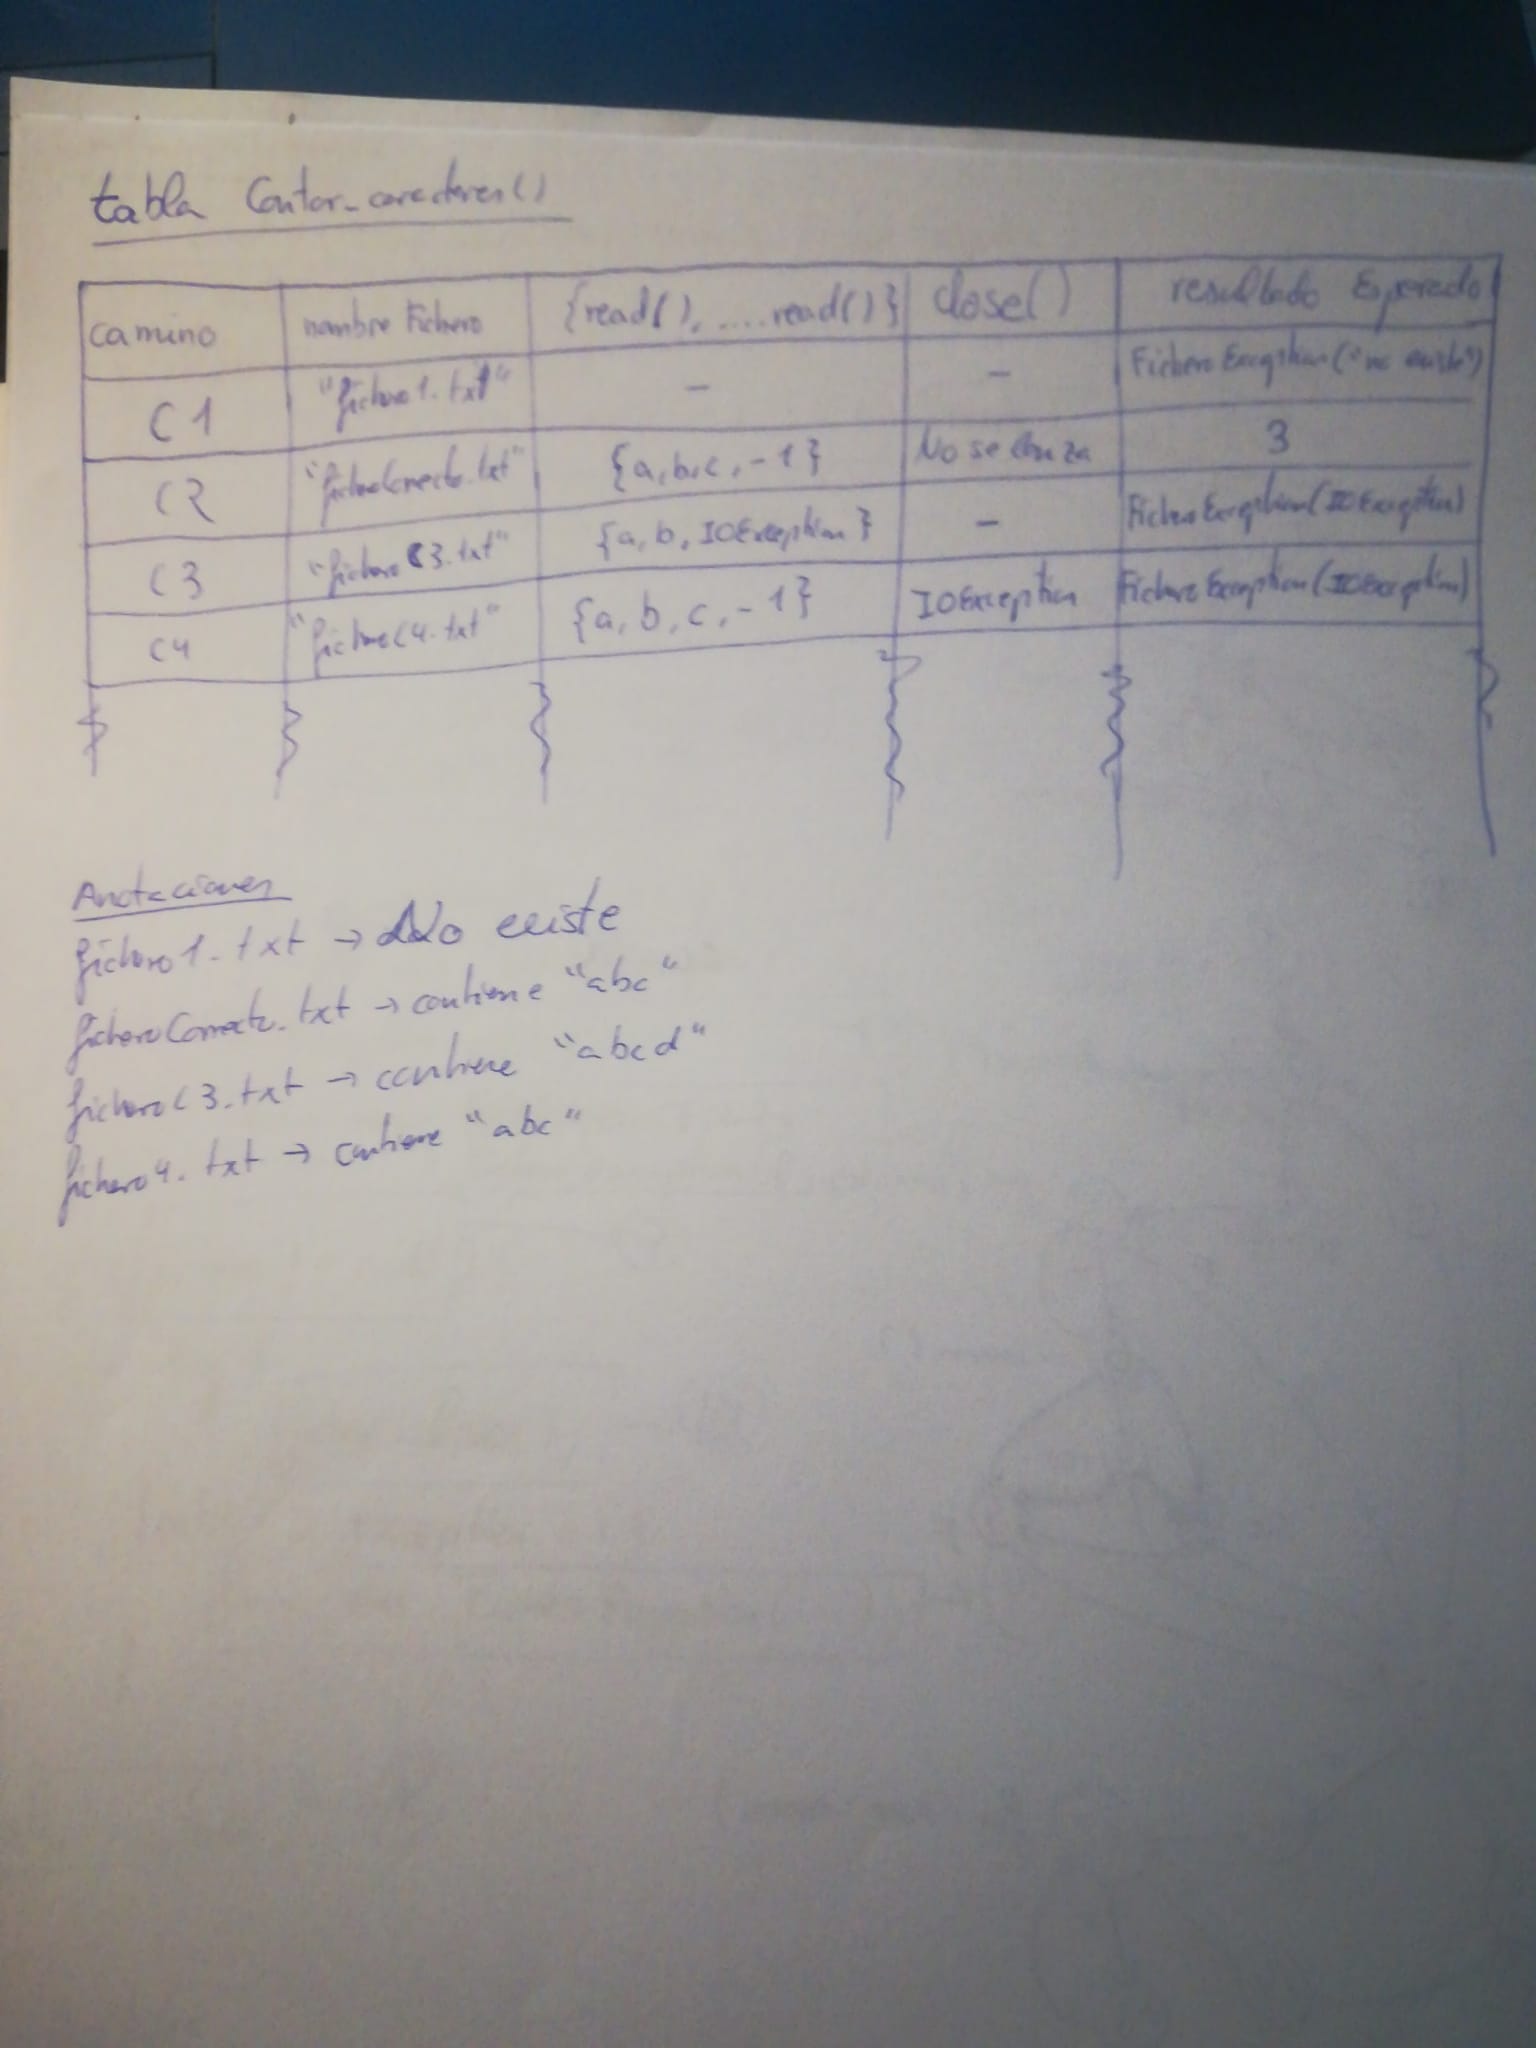 tabla Contar_caracteres()
camino nombre Fichero {read(), ....read()} close() resultado Esperado
C1 "fichero1.txt" - - FicheroException("no existe")
C2 "ficheroCorrecto.txt" {a,b,c,-1} No se lanza 3
C3 "ficheroC3.txt" {a,b,IOException} - FicheroException(IOException)
C4 "ficheroC4.txt" {a,b,c,-1} IOException FicheroException(IOException)
Anotaciones
fichero1.txt → No existe
ficheroCorrecto.txt → contiene "abc"
ficheroC3.txt → contiene "abcd"
fichero4.txt → contiene "abc"